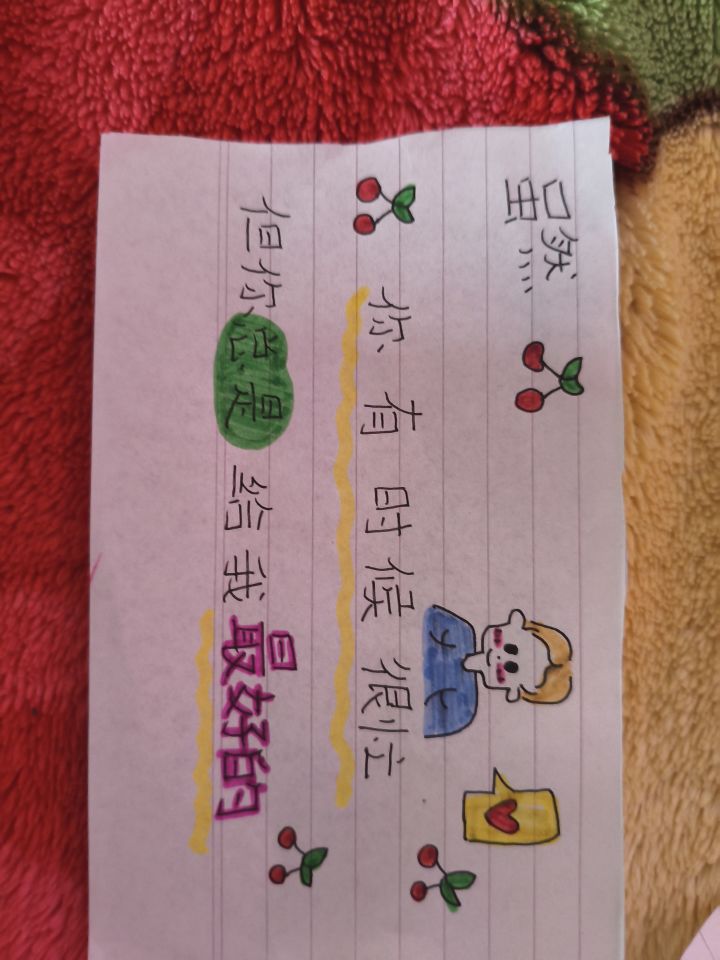 虽然
你有时候很忙
但你总是给我最好的